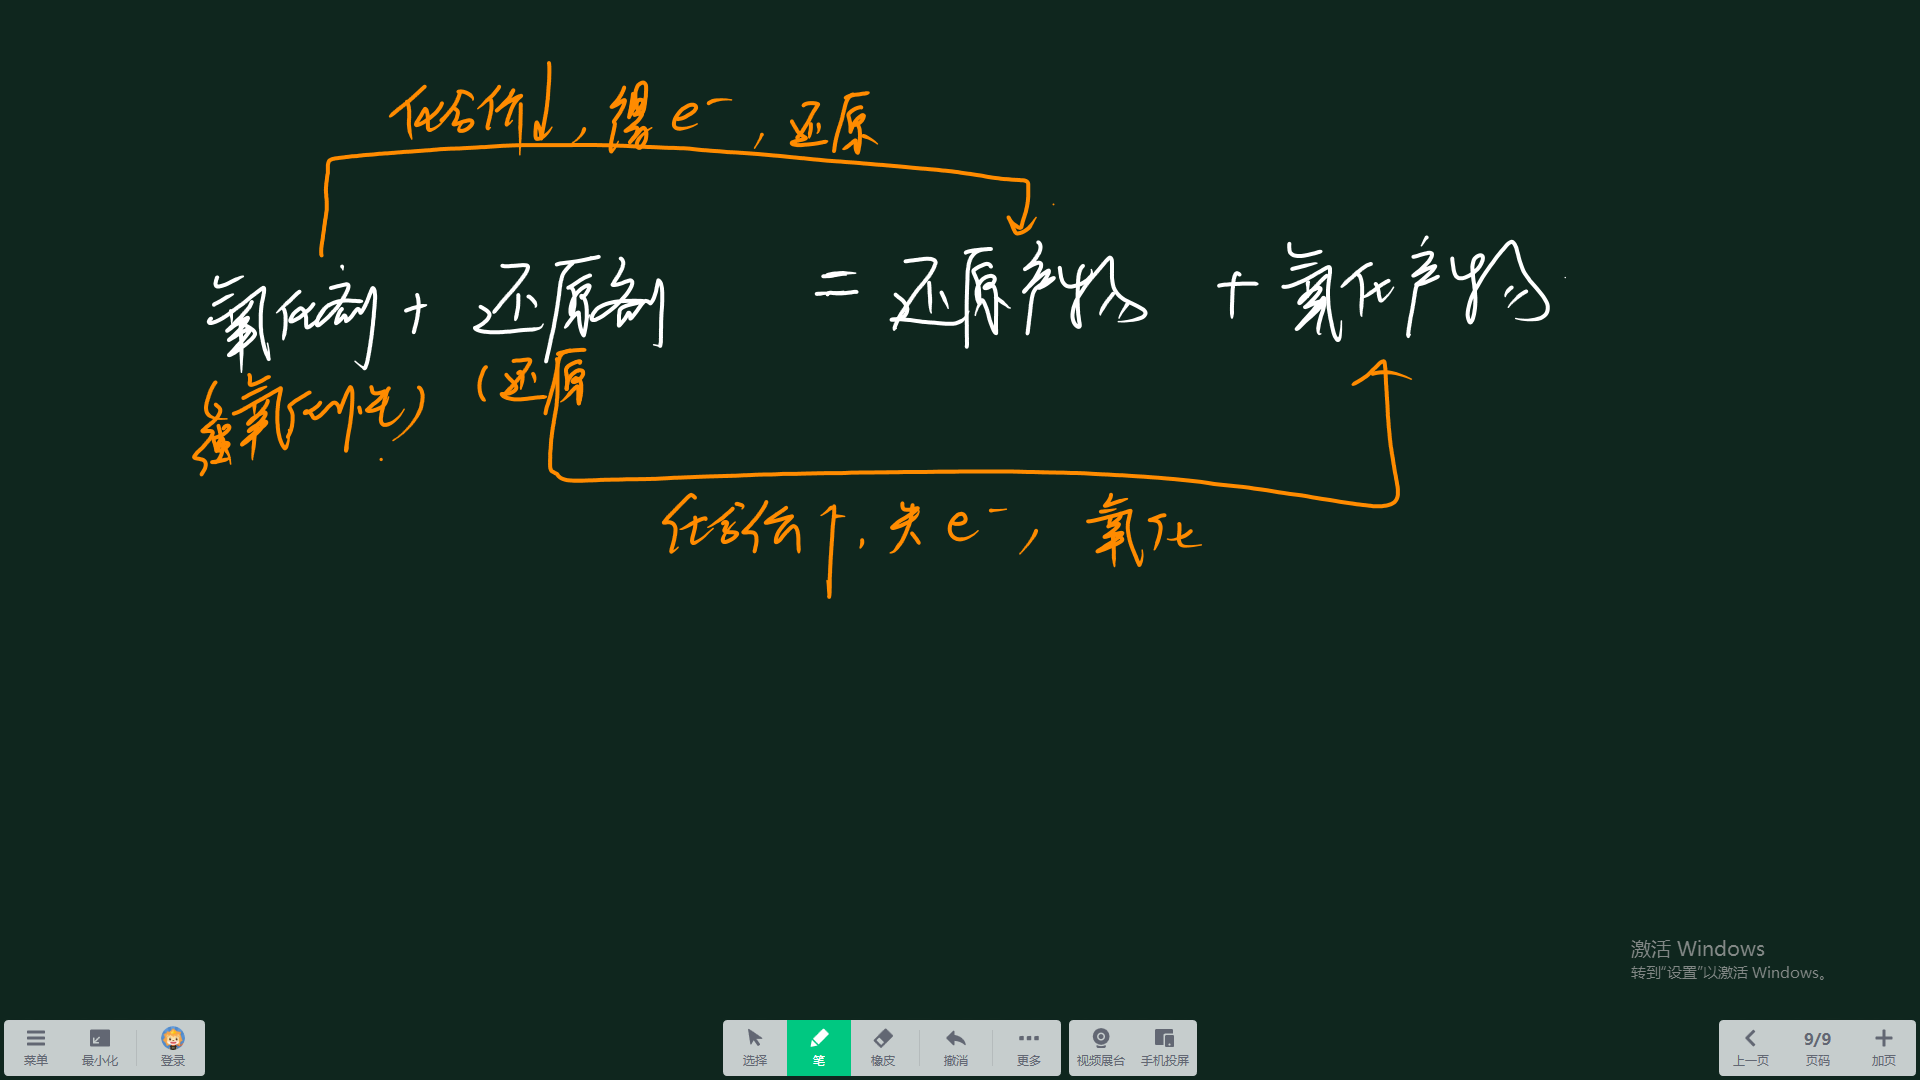 化合价↓,得e⁻,还原
氧化剂 + 还原剂 = 还原产物 + 氧化产物
(强氧化性) (还原
化合价↑,失e⁻,氧化
激活 Windows
转到“设置”以激活 Windows。
菜单 最小化 登录 选择 笔 橡皮 撤消 更多 视频展台 手机投屏 上一页 9/9 页码 加页